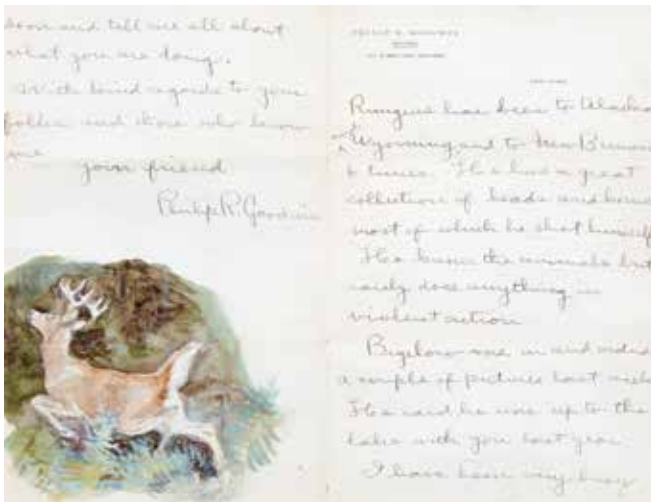 soon and tell me all about
what you are doing.
With kind regards to your
father and those who know
me
your friend
Philip R. Goodwin
Rungius has been to Alaska
Wyoming, and to New Brunswick
6 times. He has a great
collection of heads and horns
most of which he shot himself
He knows the animals but
rarely does anything in
violent action
Bigelow was in and ordered
a couple of pictures last week
He said he was up to the
lake with you last year.
I have been very busy